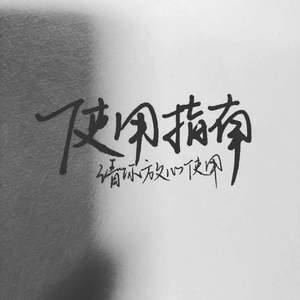 使用指南
请你放心使用